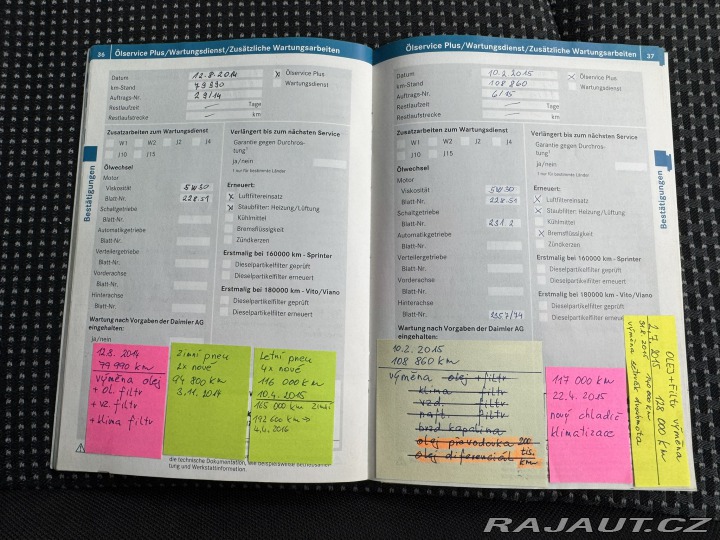 36 Ölservice Plus/Wartungsdienst/Zusätzliche Wartungsarbeiten
Datum 12.8.2014 x Ölservice Plus
km-Stand 79990 Wartungsdienst
Auftrags-Nr. 29/14
Restlaufzeit — Tage
Restlaufstrecke — km
Zusatzarbeiten zum Wartungsdienst
W1 W2 J2 J4
J10 J15
Verlängert bis zum nächsten Service
Garantie gegen Durchros-
tung¹
ja/nein
1 nur für bestimmte Länder
Ölwechsel
Motor
Viskosität 5W30
Blatt-Nr. 228.51
Schaltgetriebe
Blatt-Nr.
Automatikgetriebe
Blatt-Nr.
Verteilergetriebe
Blatt-Nr.
Vorderachse
Blatt-Nr.
Hinterachse
Blatt-Nr.
Erneuert:
x Luftfiltereinsatz
x Staubfilter: Heizung/Lüftung
Kühlmittel
Bremsflüssigkeit
Zündkerzen
Erstmalig bei 160000 km - Sprinter
Dieselpartikelfilter geprüft
Dieselpartikelfilter erneuert
Erstmalig bei 180000 km - Vito/Viano
Dieselpartikelfilter geprüft
Dieselpartikelfilter erneuert
Wartung nach Vorgaben der Daimler AG
eingehalten:
ja/nein
Bestätigungen
12.8. 2014
79 990 km
výměna olej
+ ol. filtr
+ vz. filtr
+ klima filtr
Zimní pneu
2x nové
94 800 km
3.11. 2014
Letní pneu
4x nové
116 000 km
10.4. 2015
165 000 km zimní
192 600 km →
4.4. 2016
die technische Dokumentation, wie beispielsweise Betriebsanlei-
tung und Werkstattinformation.
Ölservice Plus/Wartungsdienst/Zusätzliche Wartungsarbeiten 37
Datum 10.2.2015 x Ölservice Plus
km-Stand 108 860 Wartungsdienst
Auftrags-Nr. 6/15
Restlaufzeit — Tage
Restlaufstrecke — km
Zusatzarbeiten zum Wartungsdienst
W1 W2 J2 J4
J10 J15
Verlängert bis zum nächsten Service
Garantie gegen Durchros-
tung¹
ja/nein
1 nur für bestimmte Länder
Ölwechsel
Motor
Viskosität 5W30
Blatt-Nr. 228.51
Schaltgetriebe
Blatt-Nr. 231.2
Automatikgetriebe
Blatt-Nr.
Verteilergetriebe
Blatt-Nr.
Vorderachse
Blatt-Nr.
Hinterachse
Blatt-Nr.
Erneuert:
x Luftfiltereinsatz
x Staubfilter: Heizung/Lüftung
Kühlmittel
x Bremsflüssigkeit
Zündkerzen
Erstmalig bei 160000 km - Sprinter
Dieselpartikelfilter geprüft
Dieselpartikelfilter erneuert
Erstmalig bei 180000 km - Vito/Viano
Dieselpartikelfilter geprüft
Dieselpartikelfilter
Wartung nach Vorgaben der Daimler AG
eingehalten:
Bestätigungen
10.2. 2015
108 860 km
výměna olej + filtr
klima filtr
vzd. filtr
naft. filtr
brzd kapalina
olej převodovka 200
olej diferenciál tis. km
117 000 km
22.4. 2015
nový chladič
klimatizace
OLEJ + Filtr výměna
2.7. 2015 128 000 km
výměna
RAJAUT.CZ